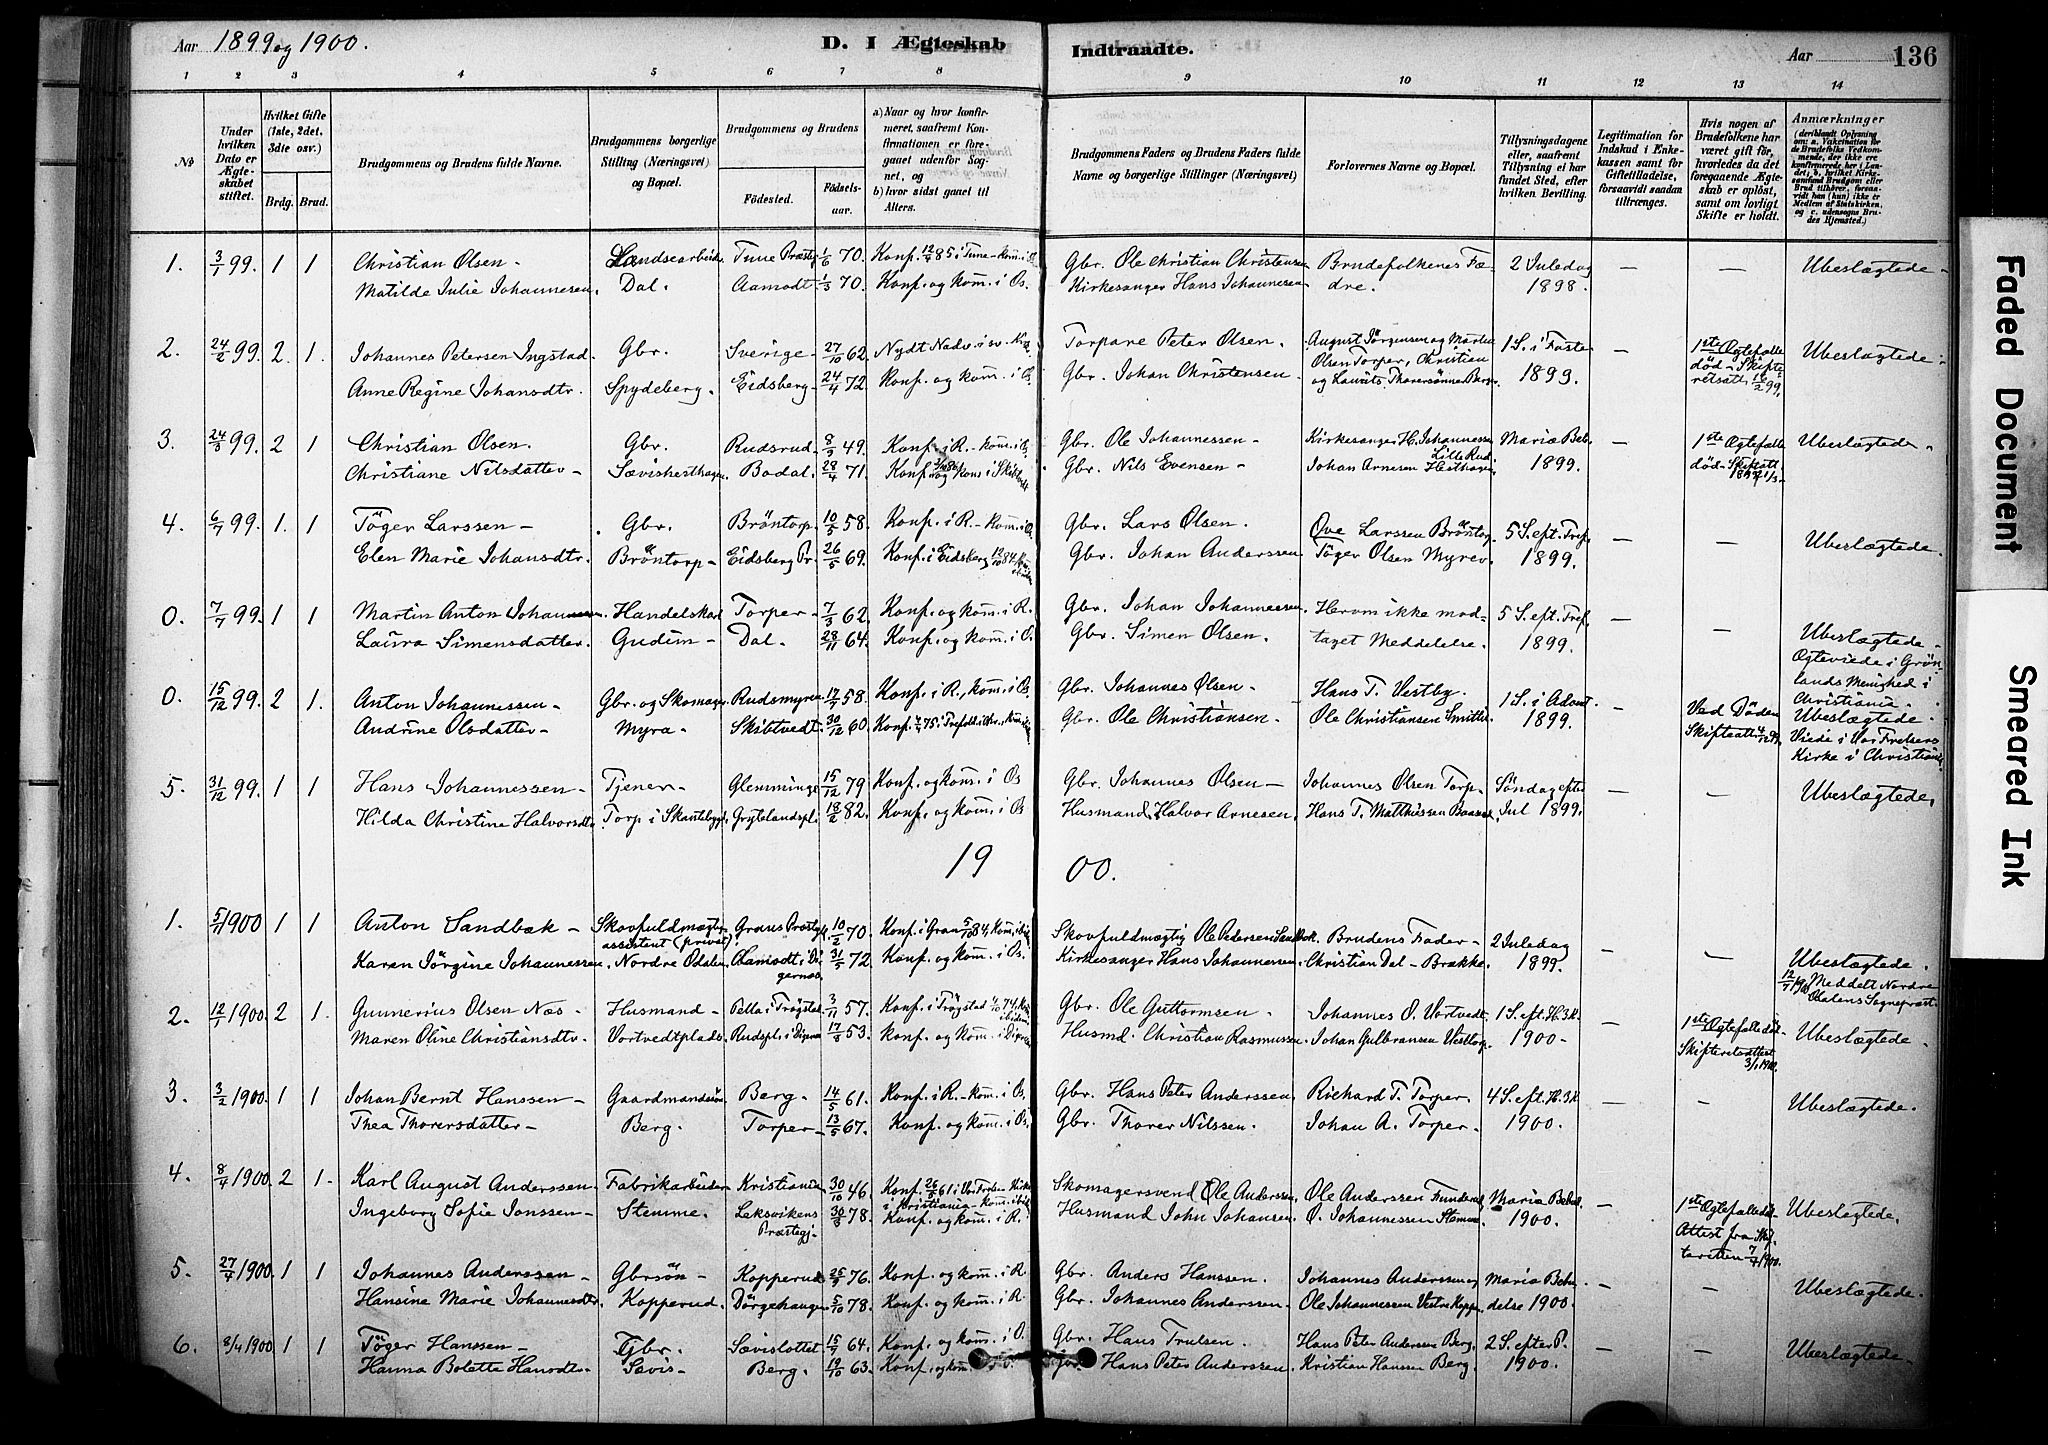 Aar 1899 og 1900.
D. I Ægteskab
Indtraadte.
Aar
136
1 2 3 4 5 6 7 8 9 10 11 12 13 14
No
Under hvilken Dato er Ægteskabet stiftet.
Hvilket Gifte (1ste, 2det, 3die osv.)
Brdg. Brud.
Brudgommens og Brudens fulde Navne.
Brudgommens borgerlige Stilling (Næringsvei) og Bopæl.
Brudgommens og Brudens
Fødested.
Fødselsaar.
a) Naar og hvor konfirmeret, saafremt Konfirmationen er foregaaet udenfor Sognet, og
b) hvor sidst gaaet til Alters.
Brudgommens Faders og Brudens Faders fulde Navne og borgerlige Stillinger (Næringsvei)
Forlovernes Navne og Bopæl.
Tillysningsdagene eller, saafremt Tillysning ei har fundet Sted, efter hvilken Bevilling.
Legitimation for Indskud i Enkekassen samt for Giftetilladelse, forsaavidt saadan tiltrænges.
Hvis nogen af Brudefolkene har været gift før, hvorledes da det foregaaende Ægteskab er opløst, samt om lovligt Skifte er holdt.
Anmærkninger
(deriblandt Oplysning om: a. Vaksination for de Brudefolks Vedkommende, der ikke ere konfirmerede her i Landet, b. hvilket Kirkesamfund Brudgom eller Brud tilhører, forsaavidt han (hun) ikke er Medlem af Statskirken, og c. udensogns Brudes Hjemsted.)
1. 3/1 99. 1 1 Christian Olsen - Landsearbeid. Tune Præstg. 1/6 70. Konf. 12/4 85 i Tune - kom. i O. Gbr. Ole Christian Christensen Brudefolkenes Fæ- 2 Juledag — — Ubeslægtede -
Matilde Julie Johannesen. Dal. Aamodt. 1/3 70. Konf. og kom. i Os. Kirkesanger Hans Johannesen dre. 1898.
2. 24/2 99. 2. 1. Johannes Petersen Ingstad Gbr. Sverige 27/10 62. Torpare Peter Olsen. August Jörgensen og Martin 1 S. i Faste — 1ste Ægtefælle Ubeslægtede -
Anne Regine Johansdtr. Spydeberg. Eidsberg 24/4 72. Konf. og kom. i O. Gbr. Johan Christensen Olsen Torper, Christian og Laurits Thorersönner Berg. 1899. död - Skifteretsatt. 16/2 99.
3. 24/3 99. 2 1 Christian Olsen. Gbr. Rudsrud 8/9 49. Konf. i R. - kom. i Os. Gbr. Ole Johannessen - Kirkesanger H. Johannessen Lille Rud Mariæ Beb. — 1ste Ægtefælle Ubeslægtede -
Christiane Nilsdatter Sævisherthagen Bodal. 28/4 71. Gbr. Nils Evensen - Johan Arnesen 1899. död -
4. 6/7 99. 1. 1 Töger Larssen - Gbr. Bröntorp 10/5 58. Konf. i R. - kom. i O. Gbr. Lars Olsen. Ove Larssen Bröntorp 5 S. eft. Tref. — Ubeslægtede.
Elen Marie Johansdtr. Bröntorp - Eidsberg Pr. 26/5 69. Konf. i Eidsberg 12/10 84 Gbr. Johan Anderssen Töger Olsen Myrer 1899.
0. 7/7 99. 1 1 Martin Anton Johannesen. Handelskarl Torper 7/3 62. Konf. og kom. i R. Gbr. Johan Johannessen. Herom ikke mod- 5 S. eft. Tref. — — Ubeslægtede -
Laura Simensdatter. Gudim - Dal. 28/11 64. Konf. og kom. i O. Gbr. Simen Olsen. taget Meddelelse. 1899. Ægteviede i Grönlands Menighed i Christiania.
0. 15/12 99. 2 1. Anton Johannessen - Gbr. og Skomager Rudsmyren 17/7 58. Konf. i R., kom. i Os. Gbr. Johannes Olsen - Hans T. Vestby. 1 S. i Advent — Ved Döden Ubeslægtede.
Andrine Olsdatter - Myra - Skibtvedt 30/12 60. Gbr. Ole Christiansen - Ole Christiansen Smitte. 1899. Skifteatt. Viede i Vor Frelsers Kirke i Christiania.
5. 31/12 99. 1 1 Hans Johannessen - Tjener - Glemminge 15/12 79 Konf. og kom. i Os Gbr. Johannes Olsen - Johannes Olsen Torp - Söndag efter — — Ubeslægtede.
Hilda Christine Halvorsdtr. Torp i Skantebygd Grytelandspl. 18/2 82. Konf. og kom. i Os Husmand Halvor Arnesen. Hans T. Matthissen Jul 1899.
19 00.
1. 5/1 1900 1 1 Anton Sandbæk - Skovfuldmægtigassistent (privat) Grans Præstegj. 10/2 70. Konf. i Gran 5/10 84, Skovfuldmægtig Ole Pedersen Sandbæk. Brudens Fader - 2 Juledag — Ubeslægtede.
Karen Jörgine Johannessen. Nordre Odalen. Aamodt i Digernes 31/5 72. Konf. og kom. i Os. Kirkesanger Hans Johannesen. Christian Dal - Brække. 1899. 12/1 1900 Meddelt Nordre Odalens Sognepræst.
2. 12/1 1900 2 1. Gunnerius Olsen Næs - Husmand - Pella i Trögstad 3/11 57. Konf. i Trögstad 4/10 74, Gbr. Ole Guttormsen - Johannes O. Vortvedt. 1 S. eft. H. 3 K. — 1ste Ægtefælle död. Ubeslægtede.
Maren Oline Christiansdtr. Vortvedtplads. Rudspl. i Digerna 17/8 53. konf. og kom. i Husmd. Christian Rasmussen. Johan Gulbransen Vesttorp. 1900 - Skifteretsattest 3/1 1900.
3. 3/2 1900. 1 1 Johan Bernt Hanssen - Gaardmandssön Berg. 14/5 61. Konf. i R. - kom. i Os. Gbr. Hans Peter Anderssen. Richard T. Torper. 4 S. eft. H. 3 K — — Ubeslægtede.
Thea Thorersdatter - Berg. Torper - 13/5 67. Konf. og kom. i Os. Gbr. Thorer Nilssen. Johan A. Torper - 1900.
4. 8/4 1900. 2 1. Karl August Anderssen. Fabrikarbeider Kristiania 30/10 46. Konf. 26/5 61 i Vor Frelsers Kirke i Kristiania - Skomagersvend Ole Anderssen. Ole Anderssen Maria Bebud. — 1ste Ægtefælle död. Ubeslægtede.
Ingeborg Sofie Jonssen - Stemme. Leksvikens Præstegj. 30/8 78. Konf. og kom. i R. Husmand John Johansen O. Johannessen Stemme 1900. Attest fra Skifteretten 7/4 1900.
5. 27/4 1900. 1 1 Johannes Anderssen - Gbrsön - Kopperud 25/9 76. Konf. og kom. i R. Gbr. Anders Hanssen. Johannes Anderssen og Maria Bebu- — — Ubeslægtede.
Hansine Marie Johannesdtr. Kopperud. Dörgehaugen 5/10 78. Konf. og kom. i R. Gbr. Johannes Anderssen. Ole Johannessen Vestre Kopp. delse 1900.
6. 8/4 1900. 1 1 Töger Hanssen - Gbr. Sævislottet 15/7 64. Konf. og kom. i O. Gbr. Hans Trulsen. Hans Peter Andersen Berg. 2 S. efter P. — — Ubeslægtede.
Hanna Bolette Hansdtr. Sævis - Berg. 19/10 63. Konf. og kom. i O. Gbr. Hans Peter Anderssen. Kristian Hanssen Berg. 1900.
Faded Document
Smeared Ink